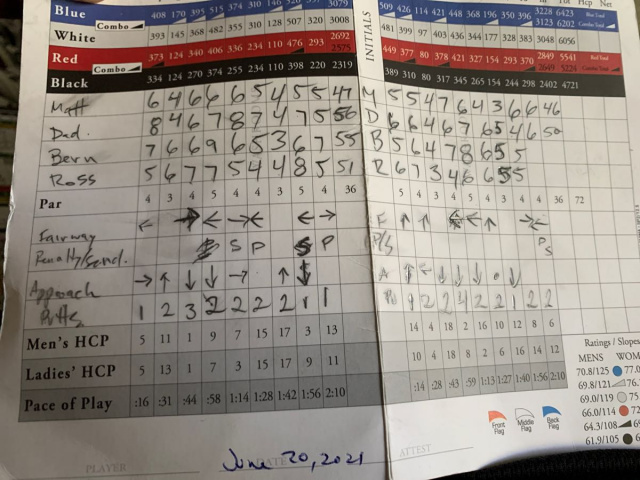 Blue 408 170 395 515 374 310 146 323 3079 509 426 114 421 448 368 196 350 396 3228 6423 Blue Total
Combo 3123 6202 Combo Total
White 393 145 368 482 355 310 128 507 320 3008 INITIALS 481 399 97 434 344 177 3048 6056
Red 373 124 340 406 336 234 110 476 293 2692 449 377 80 378 421 327 154 293 370 2849 5541 Red Total
Combo 2575 2649 5224 Combo Total
Black 334 124 270 374 255 234 110 398 220 2319 389 310 80 317 345 265 154 244 298 2402 4721
Matt 6 4 6 6 6 5 4 5 5 47 M 5 5 4 7 6 4 3 6 6 46
Dad. 8 4 6 7 8 7 4 7 5 56 D 6 6 4 6 7 6 5 4 6 50
Bern 7 6 6 9 6 5 3 6 7 55 B 5 6 4 7 8 6 5 5
Ross 5 6 7 7 5 4 4 8 5 51 R 6 7 3 4 6 6 5 5
Par 4 3 4 5 4 4 3 5 4 36 5 4 3 4 5 4 3 4 4 36 72
Fairway ← → ← → ← ← → F ↑ ↑ ← ← ↑ → ←
Penalty/Sand. S P S P P/S P S
Approach → ↑ ↓ ↓ → ↑ ↓ A ↑ ← ↓ ↓ ↓ ↓
Putts 1 2 3 2 2 2 2 1 1 2 2 4 2 2 1 2 2
Men's HCP 5 11 1 9 7 15 17 3 13 14 4 18 2 16 10 12 8 6
Ladies' HCP 5 13 1 7 3 15 17 9 11 10 4 18 8 2 6 16 14 12
Pace of Play :16 :31 :44 :58 1:14 1:28 1:42 1:56 2:10 :14 :28 :43 :59 1:13 1:27 1:40 1:56 2:10
Ratings / Slopes
MENS WOM
70.8/125 77.0
69.8/121 76
69.0/119 75
66.0/114 72
64.3/108 69
61.9/105
Front Flag Middle Flag Back Flag
PLAYER DATE June 20, 2021 ATTEST